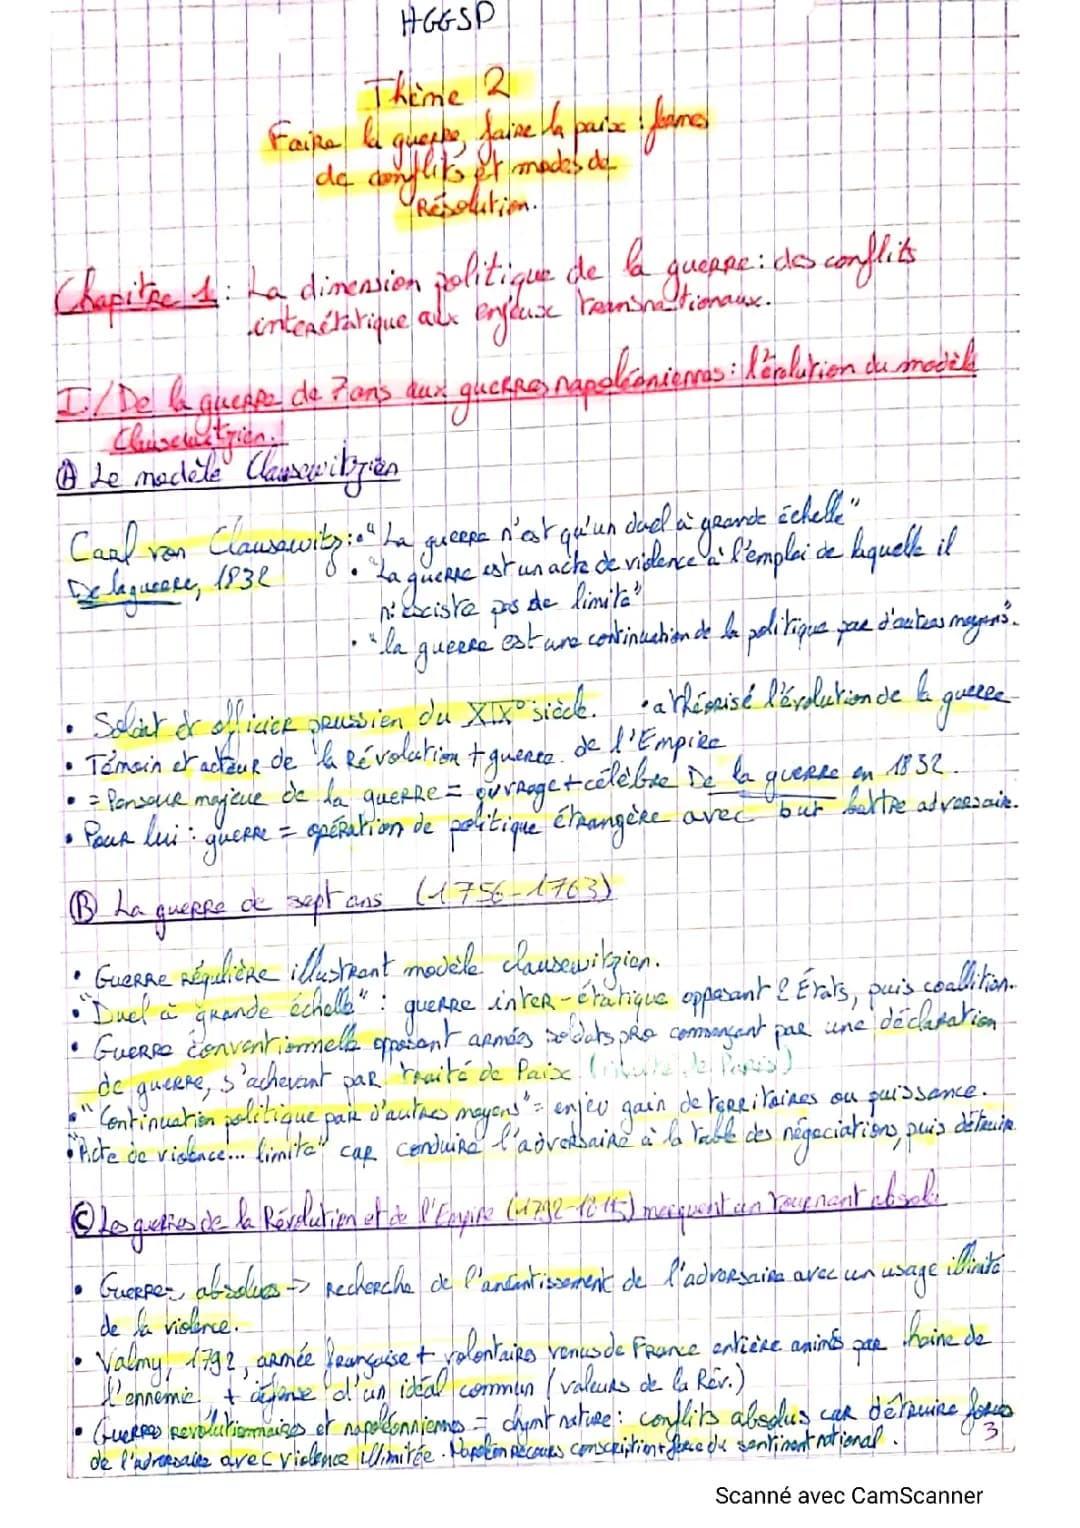 HGGSP
Thème 2
Faire la guerre, faire la paix : formes
de conflits et modes de
Résolution.
Chapitre 1 : La dimension politique de la guerre : des conflits
interétatique aux enjeux transnationaux.
I/ De la guerre de 7 ans aux guerres napoléoniennes : l'évolution du modèle
Clausewitzien.
A Le modèle Clausewitzien
Carl von Clausewitz : • "La guerre n'est qu'un duel à grande échelle"
De la guerre, 1832 • "La guerre est un acte de violence à l'emploi de laquelle il
n'existe pas de limite"
• "la guerre est une continuation de la politique par d'autres moyens".
• Soldat et officier prussien du XIX° siècle. • a théorisé l'évolution de la guerre
• Témoin et acteur de la Révolution + guerre de l'Empire
• = Penseur majeur de la guerre = ouvrage + célèbre De la guerre en 1832.
• Pour lui : guerre = opération de politique étrangère avec but battre adversaire.
B La guerre de sept ans (1756-1763)
• Guerre régulière illustrant modèle clausewitzien.
• "Duel à grande échelle" : guerre inter-étatique opposant 2 États, puis coalition.
• Guerre conventionnelle opposant armées soldats pro commençant par une déclaration
de guerre, s'achevant par traité de Paix (traité de Paris)
• "Continuation politique par d'autres moyens" = enjeu gain de territoires ou puissance.
• "Acte de violence... limite" car conduire l'adversaire à la table des négociations, puis détruire
C Les guerres de la Révolution et de l'Empire (1792-1815) marquent un tournant absolu
• Guerres absolues -> recherche de l'anéantissement de l'adversaire avec un usage illimité
de la violence.
• Valmy, 1792, armée française + volontaires venus de France entière animés par haine de
l'ennemie + défense d'un idéal commun (valeurs de la Rév.)
• Guerres révolutionnaires et napoléonniennes = chgmt nature : conflits absolus car détruire forces
de l'adversaire avec violence illimitée. Napoléon recours conscription + force du sentiment national.
3
Scanné avec CamScanner